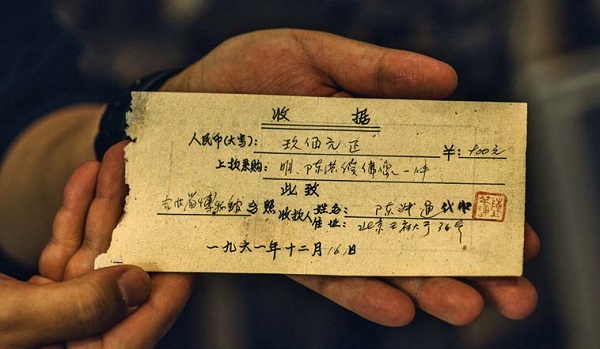 收据
人民币(大写): 玖佰元正 ¥: 900元
上款系购: 明、陈洪绶佛像一件
此致
省博物馆 台照 收款人 姓名: 陈
住址: 北京王府大 36号
一九六一年十二月16日